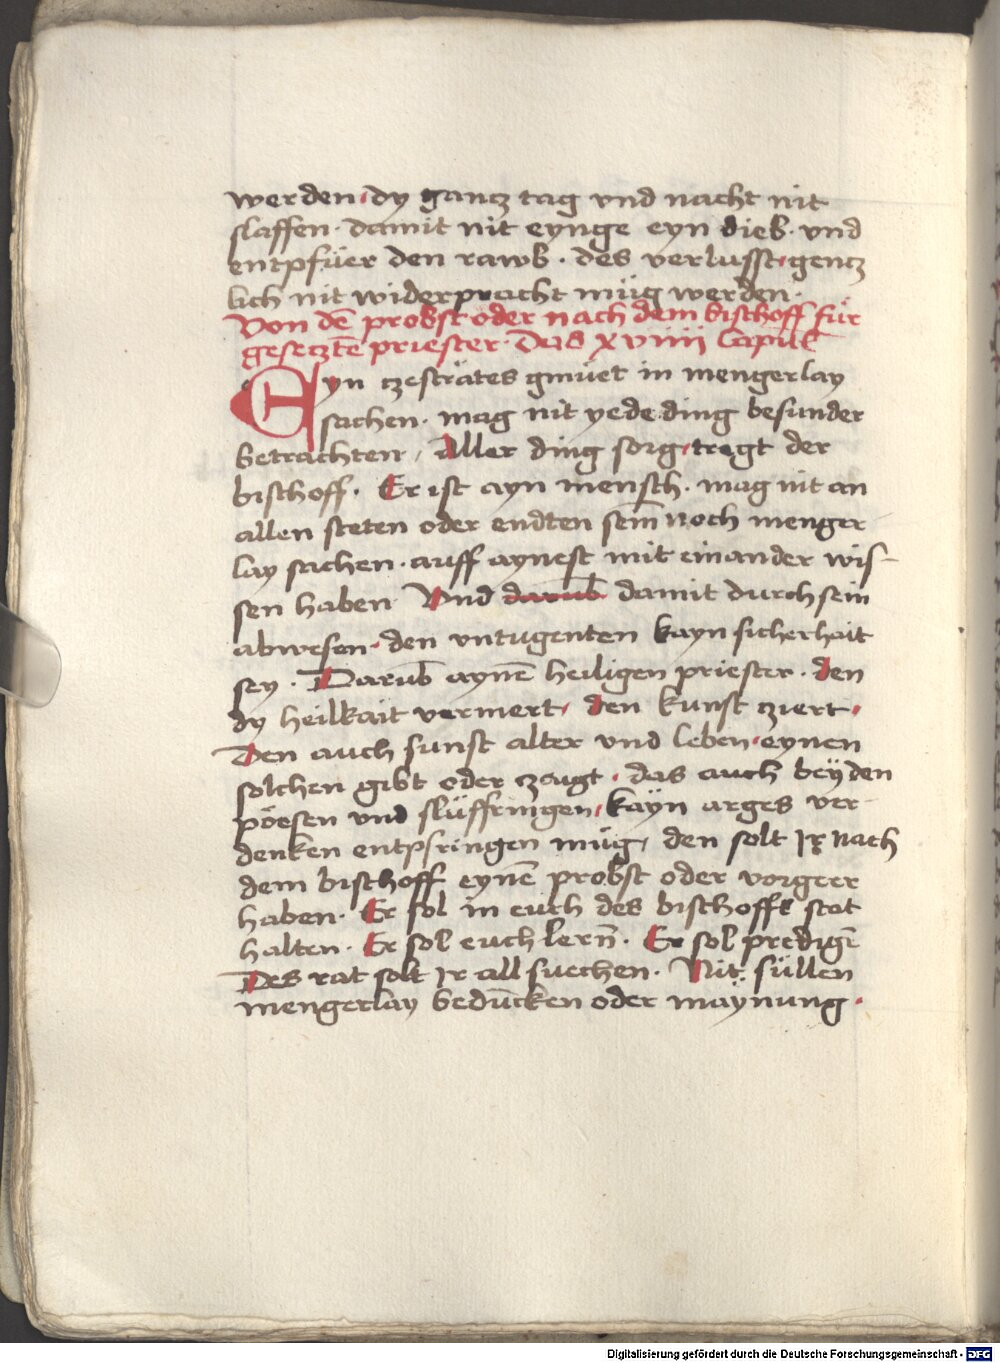 werden · dy gancz tag vnd nacht nit
slaffen · damit nit eynge eyn dieb · vnd
entpfüer den rawb · des verlusst · gencz
lich nit widerpracht müg werden ·
Von dē probst oder nach dem bischoff für
gesecztē priester · Das xviiij Capitl
Eyn czesträtes gmüet in mengerlay
sachen · mag nit yede ding besunder
betrachten / Aller ding sorg tregt der
bischoff · Er ist ayn mensch · mag nit an
allen steten oder endten sein noch menger
lay sachen · auff aynest mit einander wis-
sen haben Vnd darūb damit durch sein
abwesen · den vntugenten kayn sicherhait
sey · Darūb aynē heiligen priester · den
dy heilkait vermert / den kunst cziert ·
Den auch sunst alter vnd leben · eynen
solchen gibt oder zaugt · das auch beÿ den
pöesen vnd slüffringen / kaÿn arges ver-
denken entpsringen müg / den solt Ir nach
dem bischoff eynē probst oder vorgeer
haben · Er sol in euch des bischoffs stat
halten · Er sol euch lern̄ · Er sol predigē
Des rat solt Ir all suechen · Nit süllen
mengerlay beduncken oder maÿnung ·
Digitalisierung gefördert durch die Deutsche Forschungsgemeinschaft - DFG